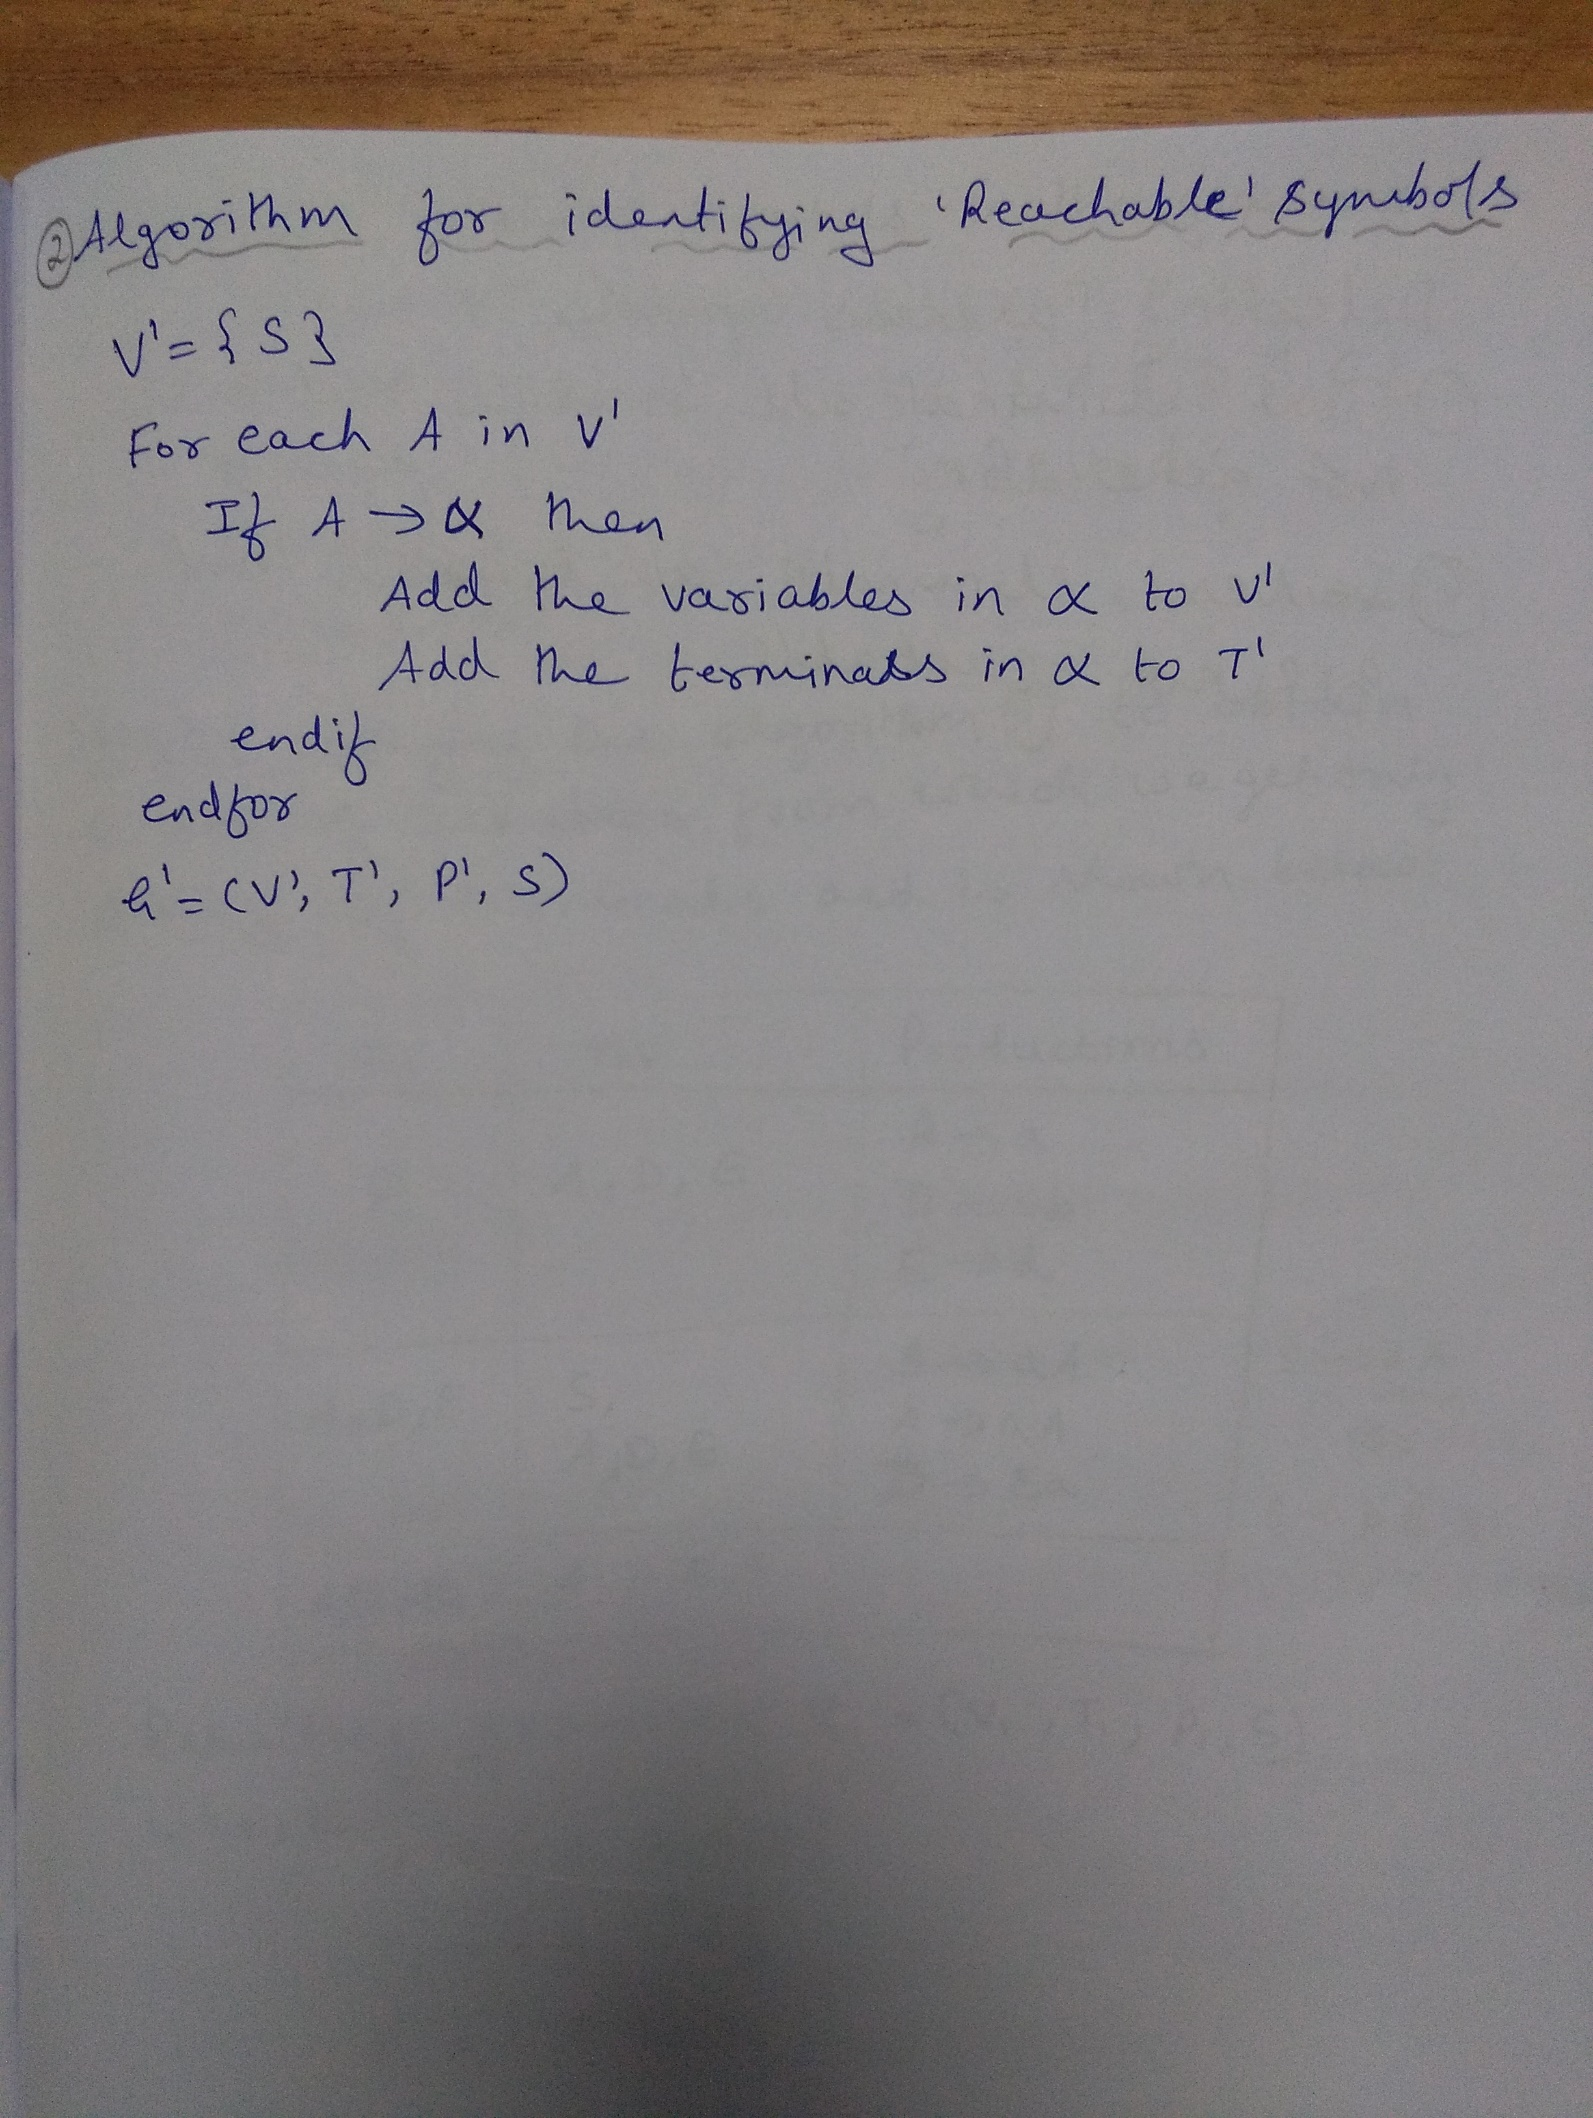 ② Algorithm for identifying 'Reachable' symbols
V' = { S }
For each A in V'
If A → α then
Add the variables in α to V'
Add the terminals in α to T'
endif
endfor
G' = (V', T', P', S)